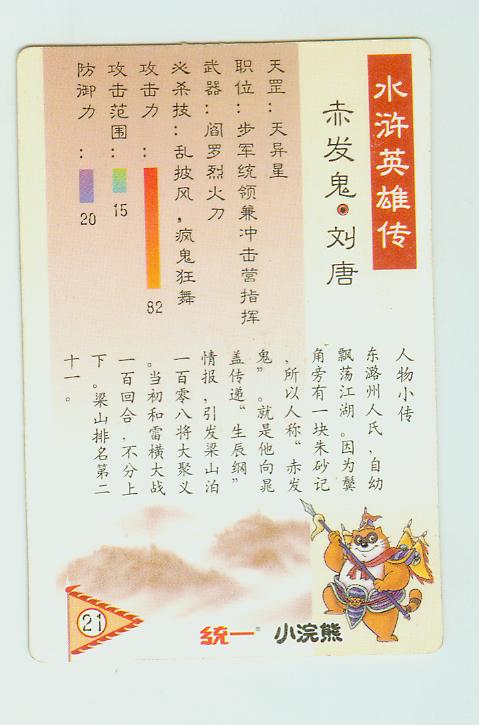 水浒英雄传
赤发鬼·刘唐
天罡：天异星
职位：步军统领兼冲击营指挥
武器：阎罗烈火刀
必杀技：乱披风，疯鬼狂舞
攻击力：
82
攻击范围：
15
防御力：
20
人物小传
东潞州人氏，自幼
飘荡江湖。因为鬓
角旁有一块朱砂记
，所以人称“赤发
鬼”。就是他向晁
盖传递“生辰纲”
情报，引发梁山泊
一百零八将大聚义
。当初和雷横大战
一百回合，不分上
下。梁山排名第二
十一。
21
统一®
小浣熊